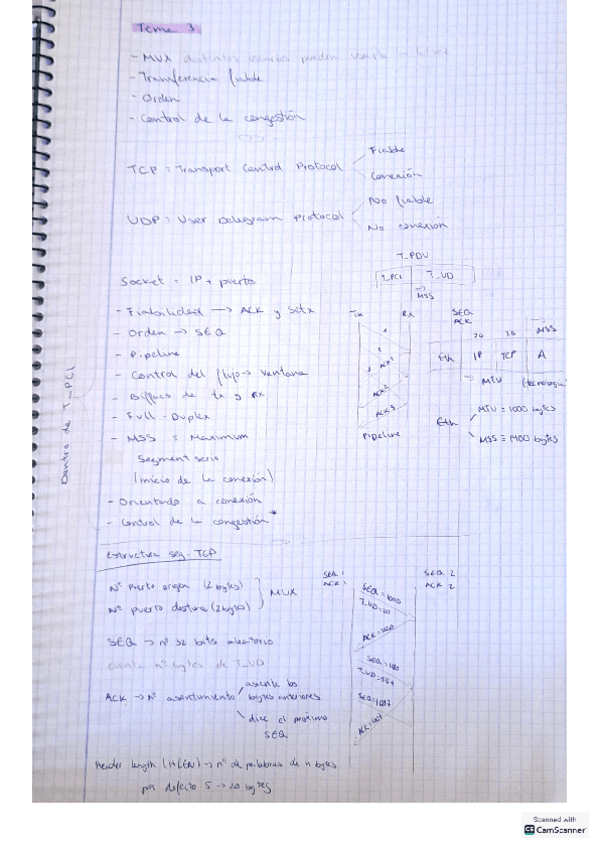 Tema 3
- MUX distintos usuarios pueden usarla a la vez
- Transferencia fiable
- Orden
- Control de la congestión
TCP : Transport Control Protocol
Fiable
Conexión
UDP : User Datagram Protocol
No fiable
No conexión
T_PDU
T_PCI T_UD
MSS
Socket = IP + puerto
- Fiabilidad → ACK y
- Orden → SEQ
- Pipeline
- Control del flujo → Ventana
- Buffers de tx y Rx
- Full-Duplex
- MSS ≡ Maximum
Segment
(inicio de la conexión)
- Orientado a conexión
- Control de la congestión *
Dentro de T_PCI
Tx Rx
ACK 1
ACK 2
ACK 3
Pipeline
SEQ
ACK
20 20 MSS
Eth IP TCP A
MTU (tecnología
Eth
MSS ≡ 1460 bytes
Estructura seg. TCP
Nº Puerto origen (2 bytes)
Nº puerto destino (2 bytes)
MUX
SEQ → nº 32 bits aleatorio
cuenta nº bytes de T_UD
ACK → Nº asentimiento
asiente los
bytes anteriores
dice el próximo
SEQ
SEQ 1
ACK 1
SEQ 2
ACK 2
SEQ = 1000
Header length (HLEN) → nº de palabras de n bytes
por defecto 5 → 20 bytes
Scanned with
CS CamScanner